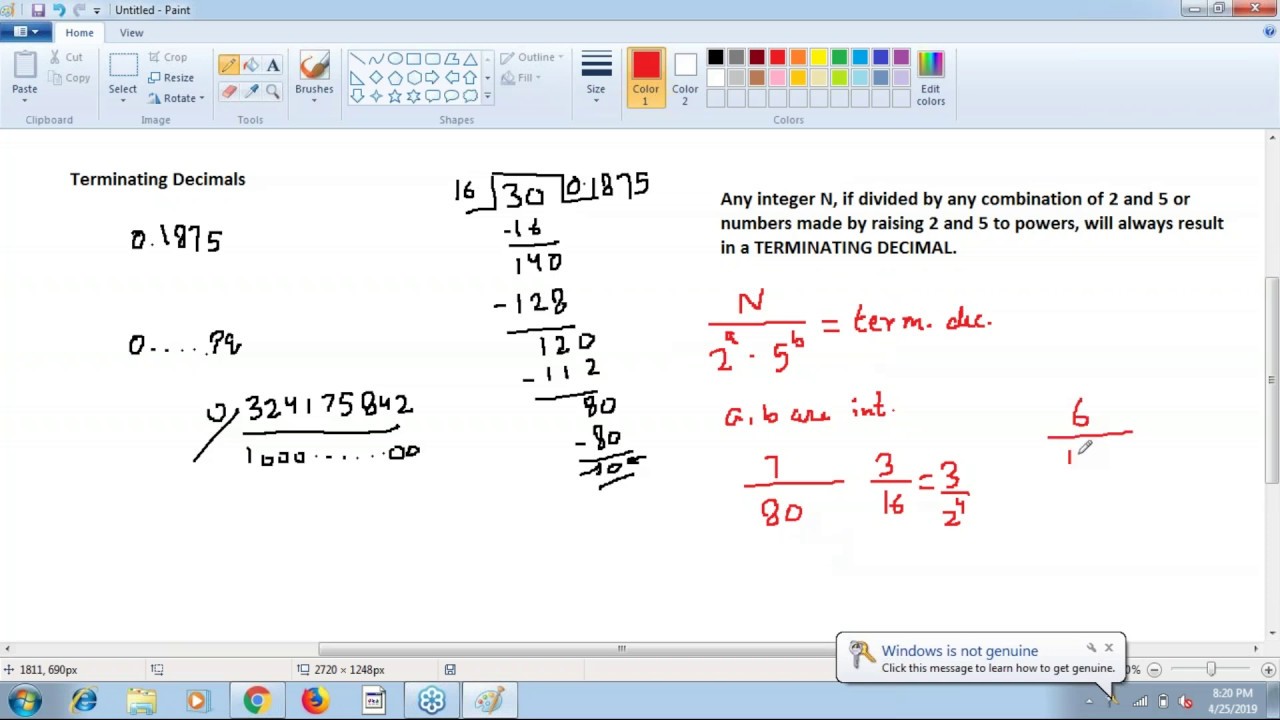 Untitled - Paint
Home
View
Paste
Cut
Copy
Clipboard
Select
Crop
Resize
Rotate
Image
A
Tools
Brushes
Outline
Fill
Shapes
Size
Color 1
Color 2
Edit colors
Colors
Terminating Decimals
0.1875
0.....
0.324175842
1000.......00
16 30 0.1875
-16
140
-128
120
-112
80
-80
Any integer N, if divided by any combination of 2 and 5 or
numbers made by raising 2 and 5 to powers, will always result
in a TERMINATING DECIMAL.
N
= term. dec.
2^a · 5^b
a, b are int.
7
80
3
16
= 3
2^4
6
1
Windows is not genuine
Click this message to learn how to get genuine.
1811, 690px
2720 × 1248px
0%
8:20 PM
4/25/2019